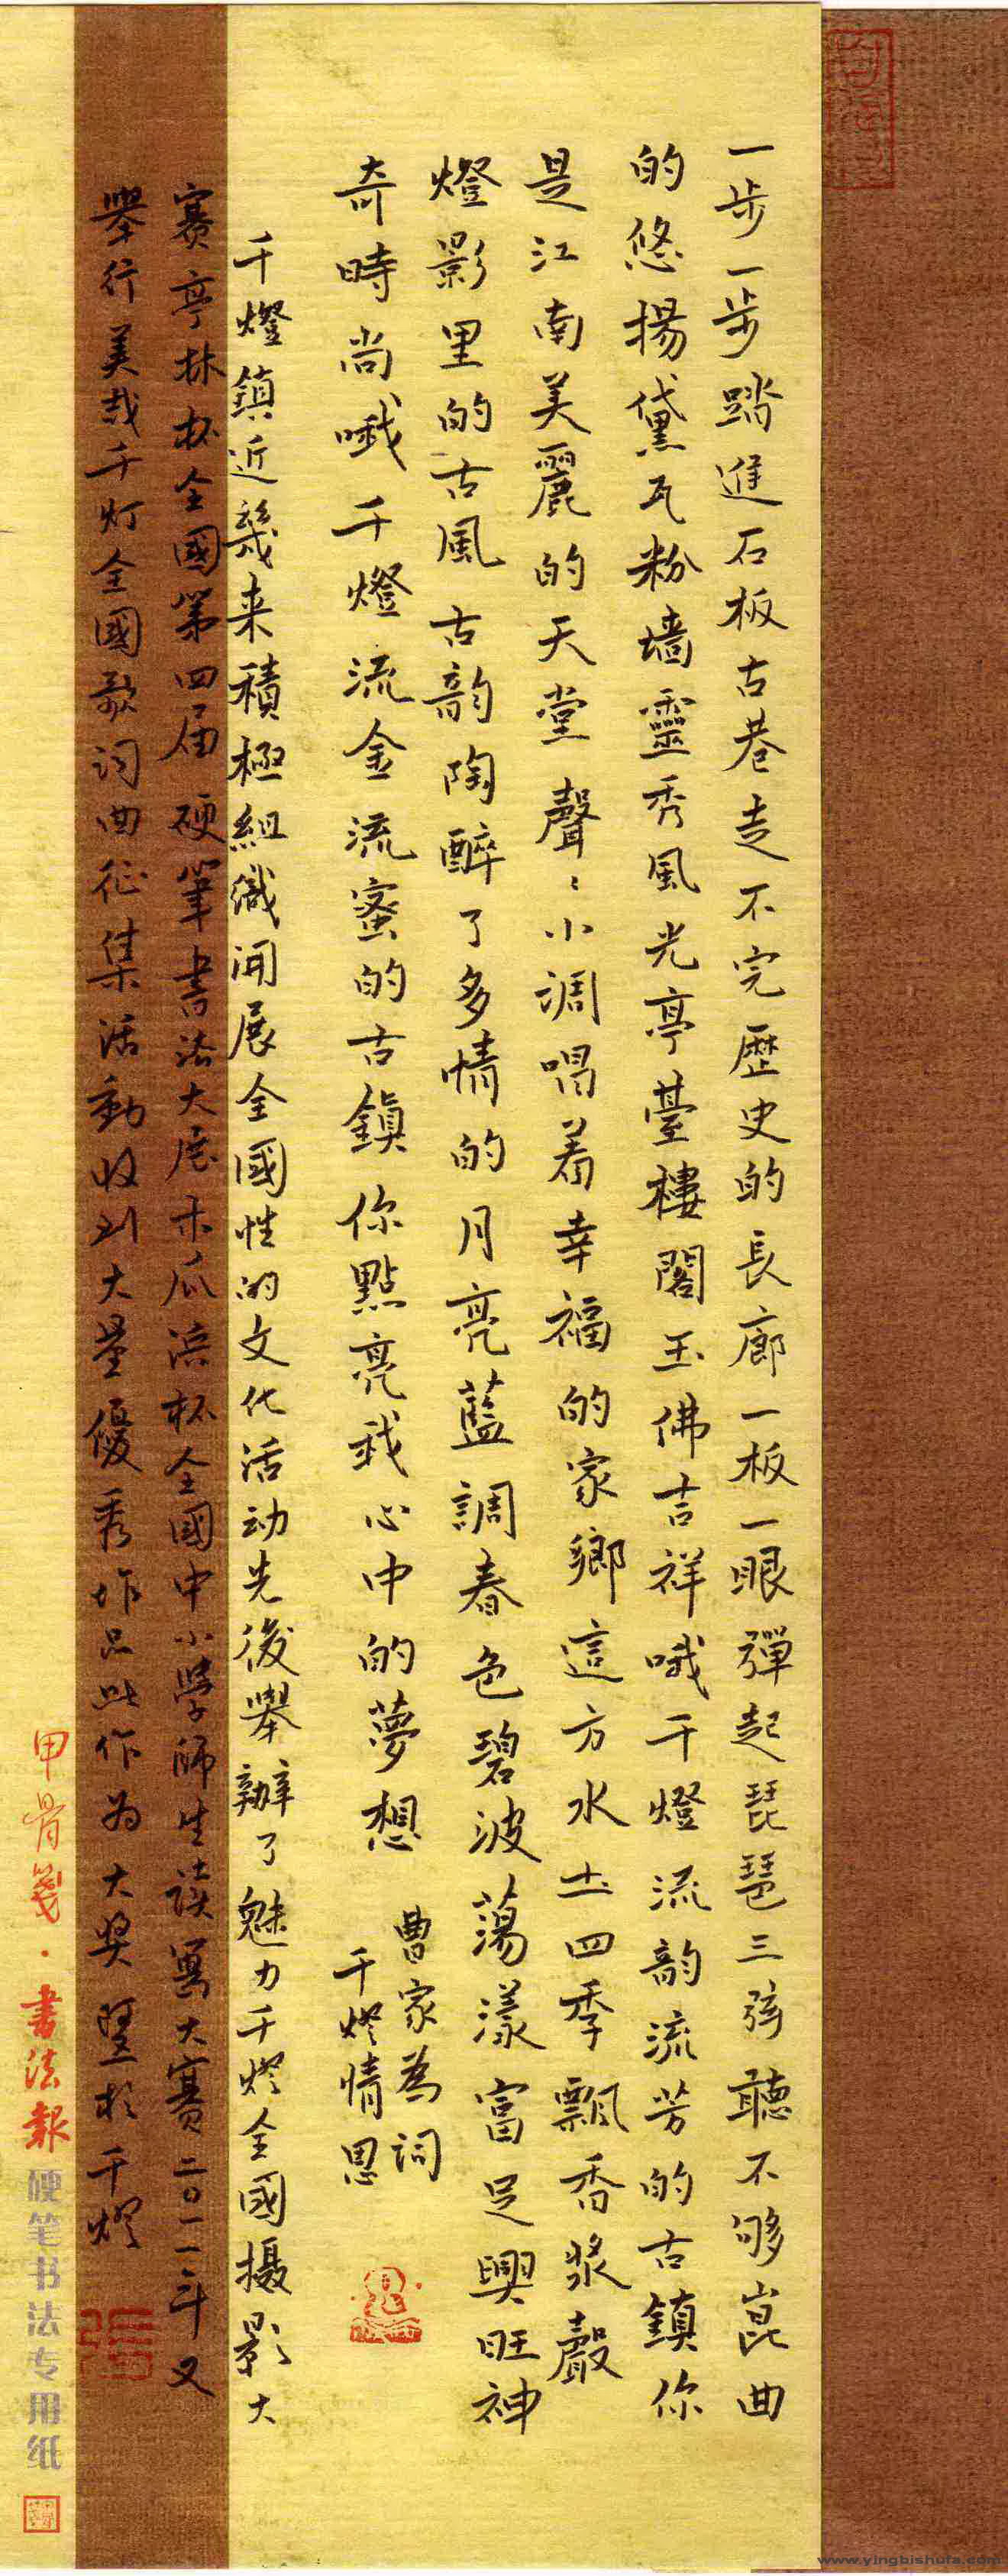 一步一步踏進石板古巷走不完歷史的長廊一板一眼彈起琵琶三弦聽不够崑曲
的悠揚黛瓦粉墙靈秀風光亭臺樓閣玉佛吉祥哦千燈流韵流芳的古鎮你
是江南美麗的天堂聲〻小調唱着幸福的家鄉這方水土四季飄香漿聲
燈影里的古風古韵陶醉了多情的月亮藍調春色碧波蕩漾富足興旺神
奇時尚哦千燈流金流蜜的古鎮你點亮我心中的夢想
曹家為詞
千燈情思
千燈鎮近幾来積極組織開展全國性的文化活动先後舉辦了魅力千燈全國摄影大
賽亭林杯全國第四届硬筆書法大展木瓜浜杯全國中小學師生读寫大赛二〇一一年又
舉行美哉千灯全國歌词曲征集活動收到大量優秀作品此作为大奖竪於千燈
甲骨箋·書法報
硬笔书法专用纸
www.yingbishufa.com